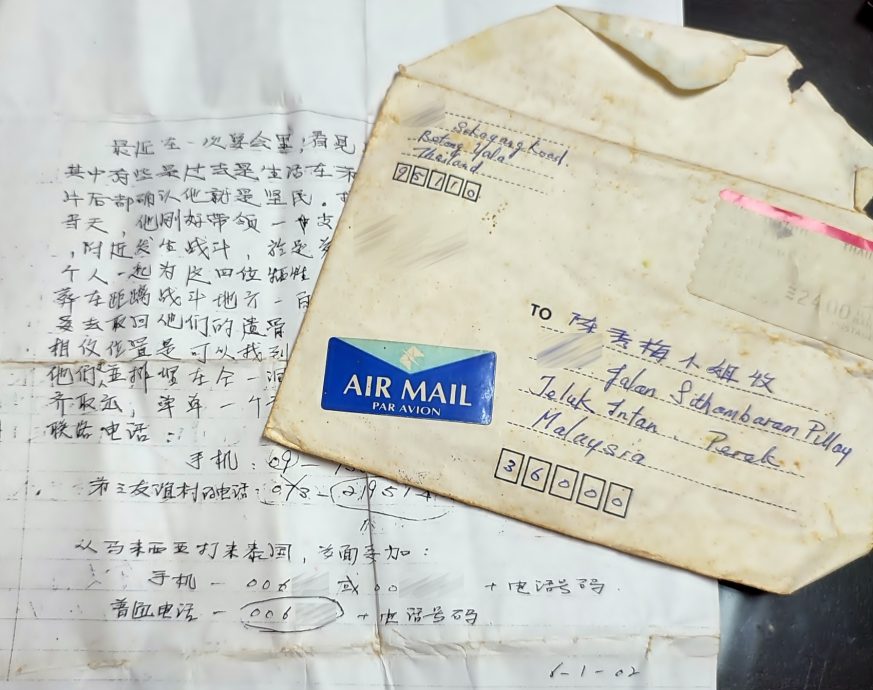 最近在一次宴会里，看见
其中有些是过去是生活在
片后都确认他就是坚民。
当天，他刚好带领一支
，附近发生战斗，於是
个人一起为这四位牺牲
葬在距离战斗地方一百
要去取回他们的遗骨
相信位置是可以找到
他们安排
齐取出，单单一个
联络电话：
手机：09-
第三友谊村的电话：073-219514
从马来西亚打来泰国，前面要加：
手机 - 006 或 00 + 电话号码
普通电话 - 006 + 电话号码
6-1-02
Road,
Betong Yala
Thailand
95110
24.00
AIR MAIL
PAR AVION
TO 陈秀梅小姐收
Jalan Sithambaram Pillay
Teluk Intan Perak
Malaysia
36000